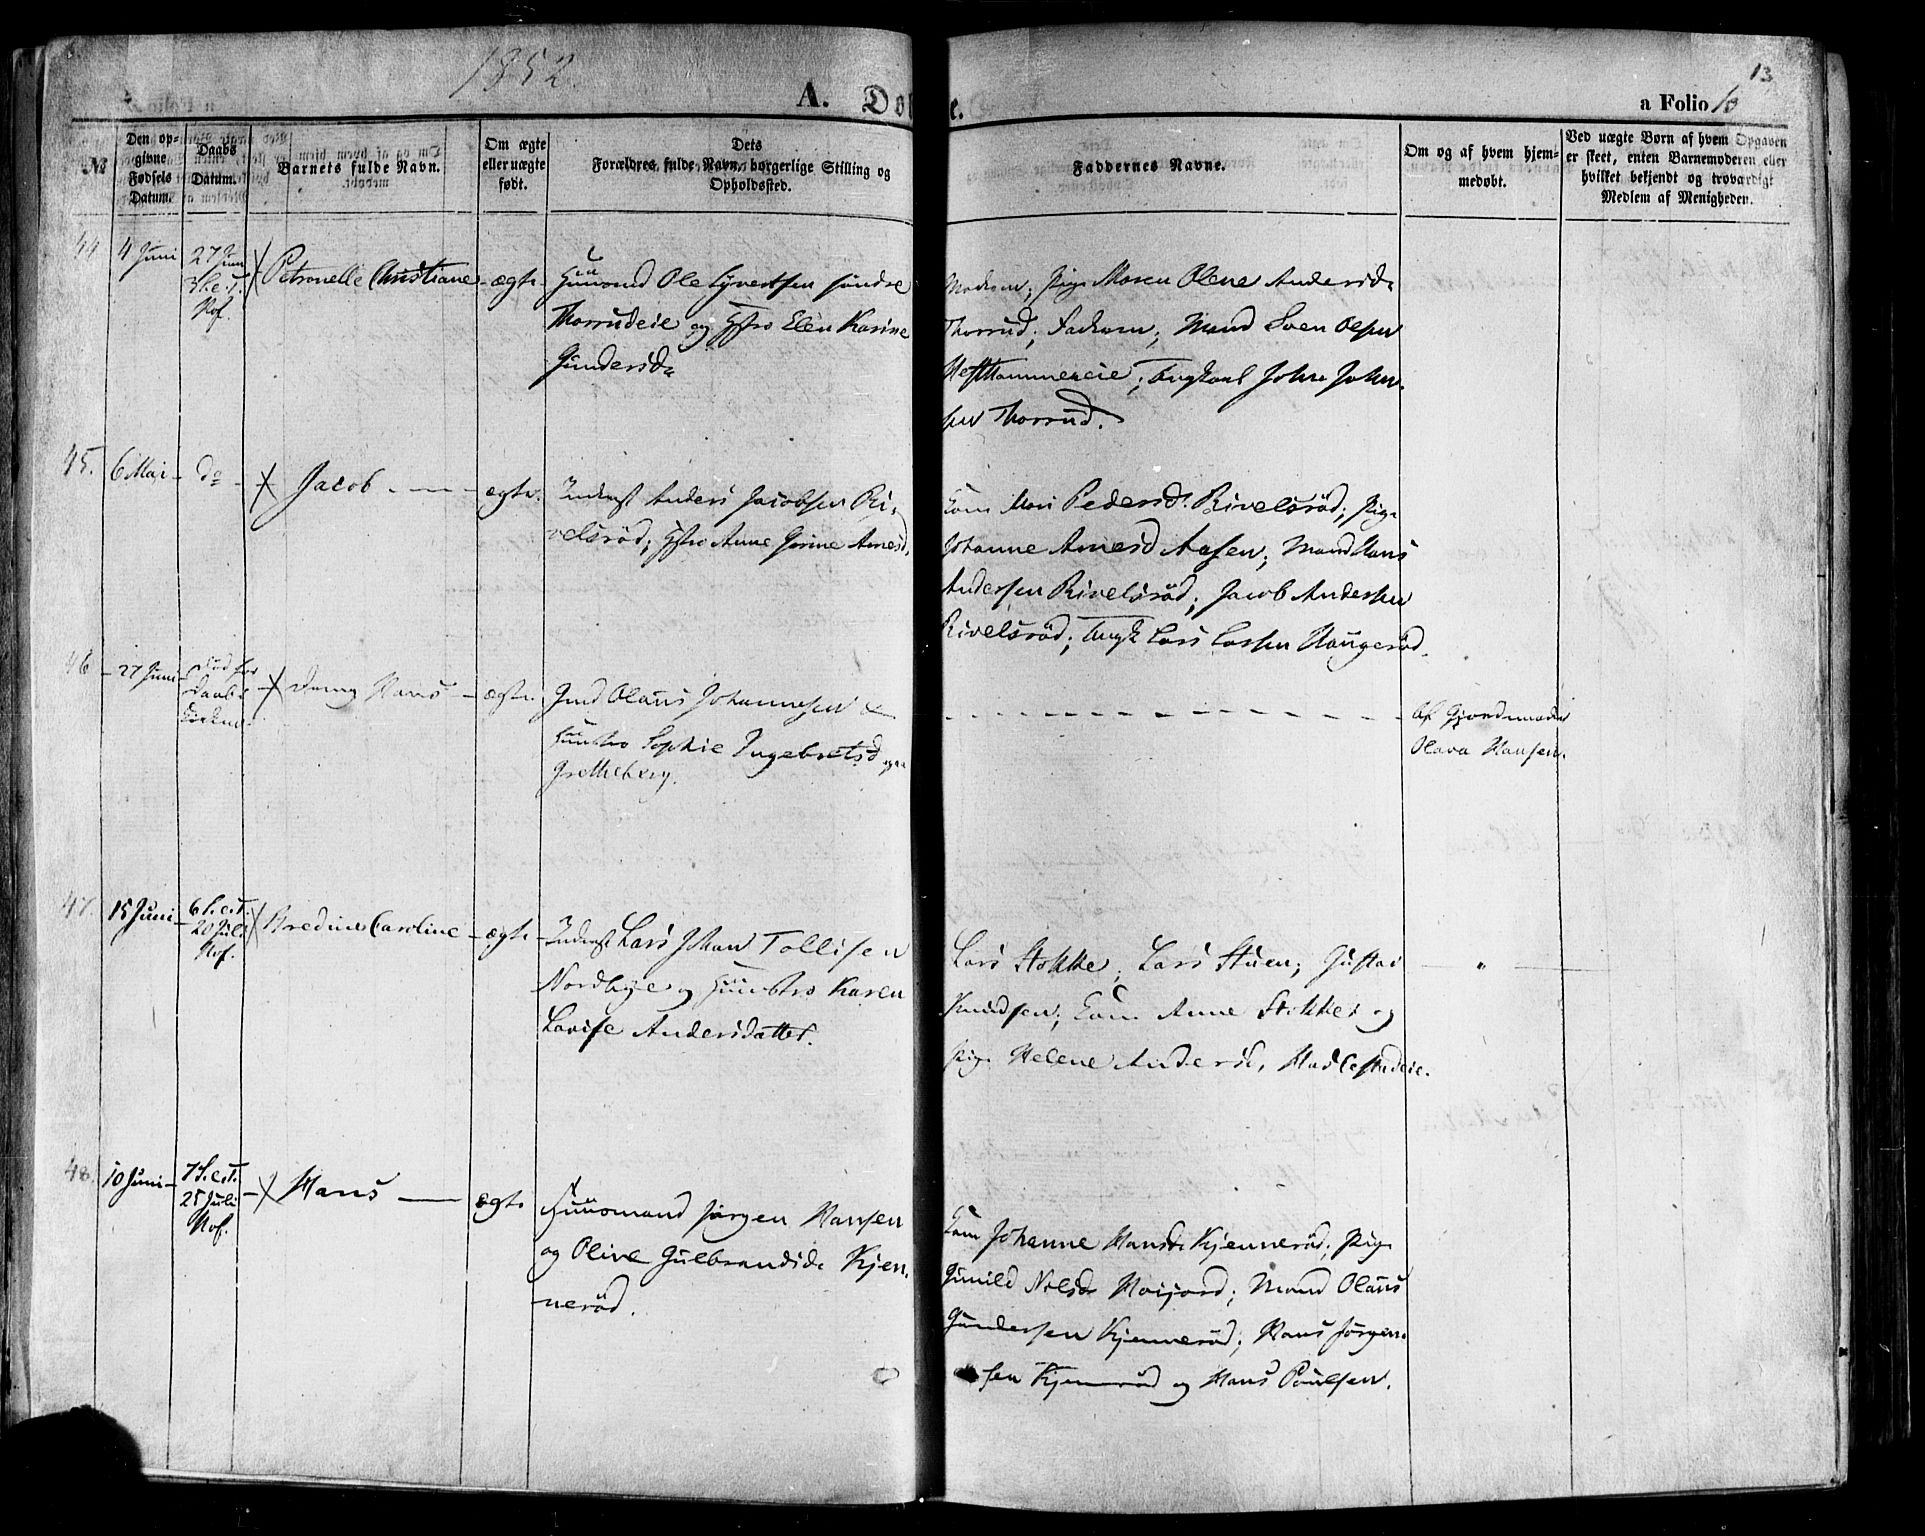 1852.
13
A. Døbte.
a Folio 13
№
Den opgivne Fødsels Datum.
Daabs Datum.
Barnets fulde Navn.
Om ægte eller uægte født.
Dets Forældres fulde Navn, borgerlige Stilling og Opholdssted.
Faddernes Navne.
Om og af hvem hjemmedøbt.
Ved uægte Børn af hvem Opgaven er skeet, enten Barnemoderen eller hvilket bekjendt og troværdigt Medlem af Menigheden.
44 4 Juni 27 Juni 3 S. e. T. Hof. Petronelle Christiane ægte
Huusmd Ole Syvertsen søndre
Thorrudeie og Hstro Elen Karine
Gundersd.
Moderen; Pige Maren Olene Andersd.
Thorrud; Faderen; Mand Sven Olsen
Thorrud; Ungkarl John John-
sen Thorrud.
45. 6 Mai do Jacob ægte
Inderst Anders Jacobsen Ri-
velsrød; Hstro Anne Arnesd.
Kone Mari Pedersd. Rivelsrød; Pige
Johanne Arnesd Aasen; Mand Hans
Andersen Rivelsrød; Jacob Andersen
Rivelsrød; Ungk Lars Larsen Haugerød.
46 27 Juni død før Daabs Hans ægte
Gmd Olaus Johannesen &
Hustro Sophie Ingebretsd
Grettheberg.
Af Gjordemoder
Olava Hansen.
47. 15 Juni 6 S. e. T. 20 Juli Hof. Bredine Caroline ægte
Inderst Lars Johan Tollisen
Nordbye og Huustro Karen
Lovise Andersdatter.
Lars Stokke; Lars Stuen; Gustav "
Knudsen; Kone Anne Stokke og
Pige Helene Andersd.
48. 10 Juni 7 S. e. T. 25 Juli Hof. Hans ægte
Huusmand Jørgen Hansen
og Olive Gulbrandsd. Kjen-
nerød.
Kone Johanne Hansd. Kjennerød; Pige
Gunild Nilsd Hoijord; Mand Olaus
Gundersen Kjennerød; Hans Jørgen-
sen Kjennerød og Hans Paulsen.